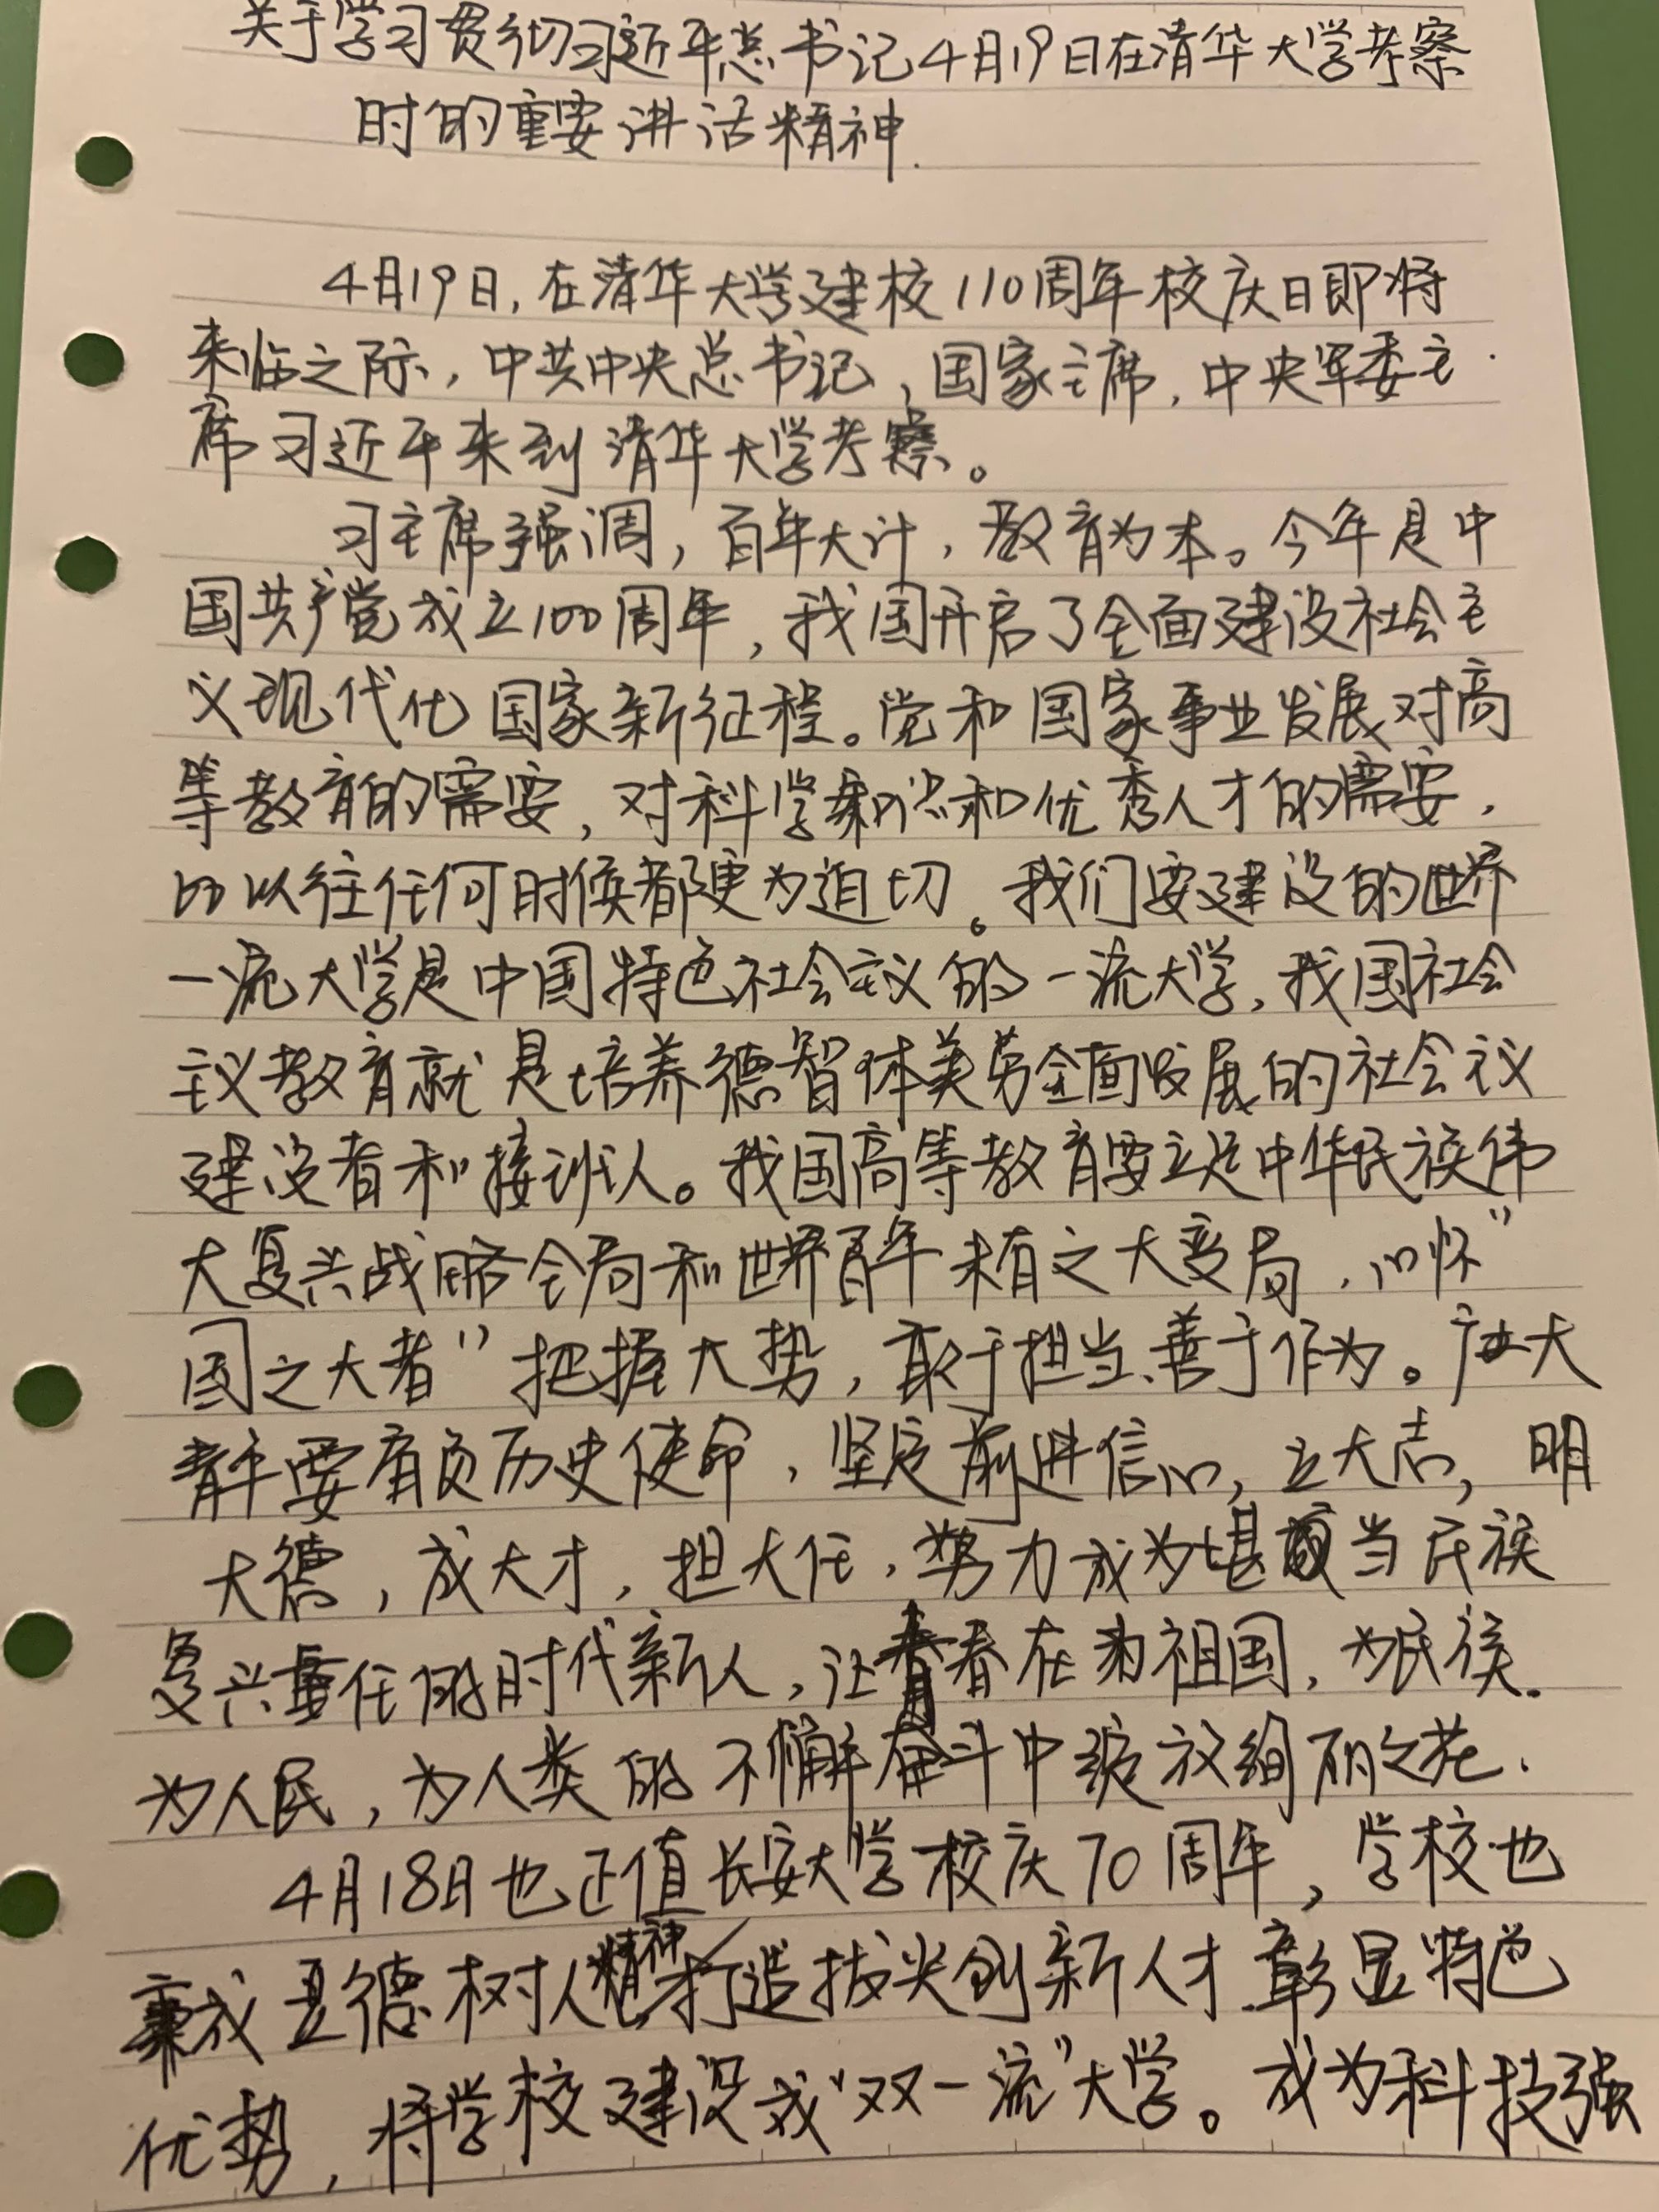 关于学习贯彻习近平总书记4月19日在清华大学考察
时的重要讲话精神.
4月19日,在清华大学建校110周年校庆日即将
来临之际,中共中央总书记,国家主席,中央军委主
席习近平来到清华大学考察。
习主席强调,百年大计,教育为本。今年是中
国共产党成立100周年,我国开启了全面建设社会主
义现代化国家新征程。党和国家事业发展对高
等教育的需要,对科学知识和优秀人才的需要,
比以往任何时候都更为迫切。我们要建设的世界
一流大学是中国特色社会主议的一流大学,我国社会
主议教育就是培养德智体美劳全面发展的社会主议
建设者和接班人。我国高等教育要立足中华民族伟
大复兴战略全局和世界百年未有之大变局,心怀"
国之大者"把握大势,敢于担当、善于作为。广大
青年要肩负历史使命,坚定前进信心,立大志,明
大德,成大才,担大任,努力成为堪当民族
复兴重任的时代新人,让青春在为祖国,为民族.
为人民,为人类的不懈奋斗中绽放绚丽之花.
4月18日也正值长安大学校庆70周年,学校也
秉成立德树人精神打造拔尖创新人才彰显特色
优势,将学校建设成"双一流"大学。成为科技强